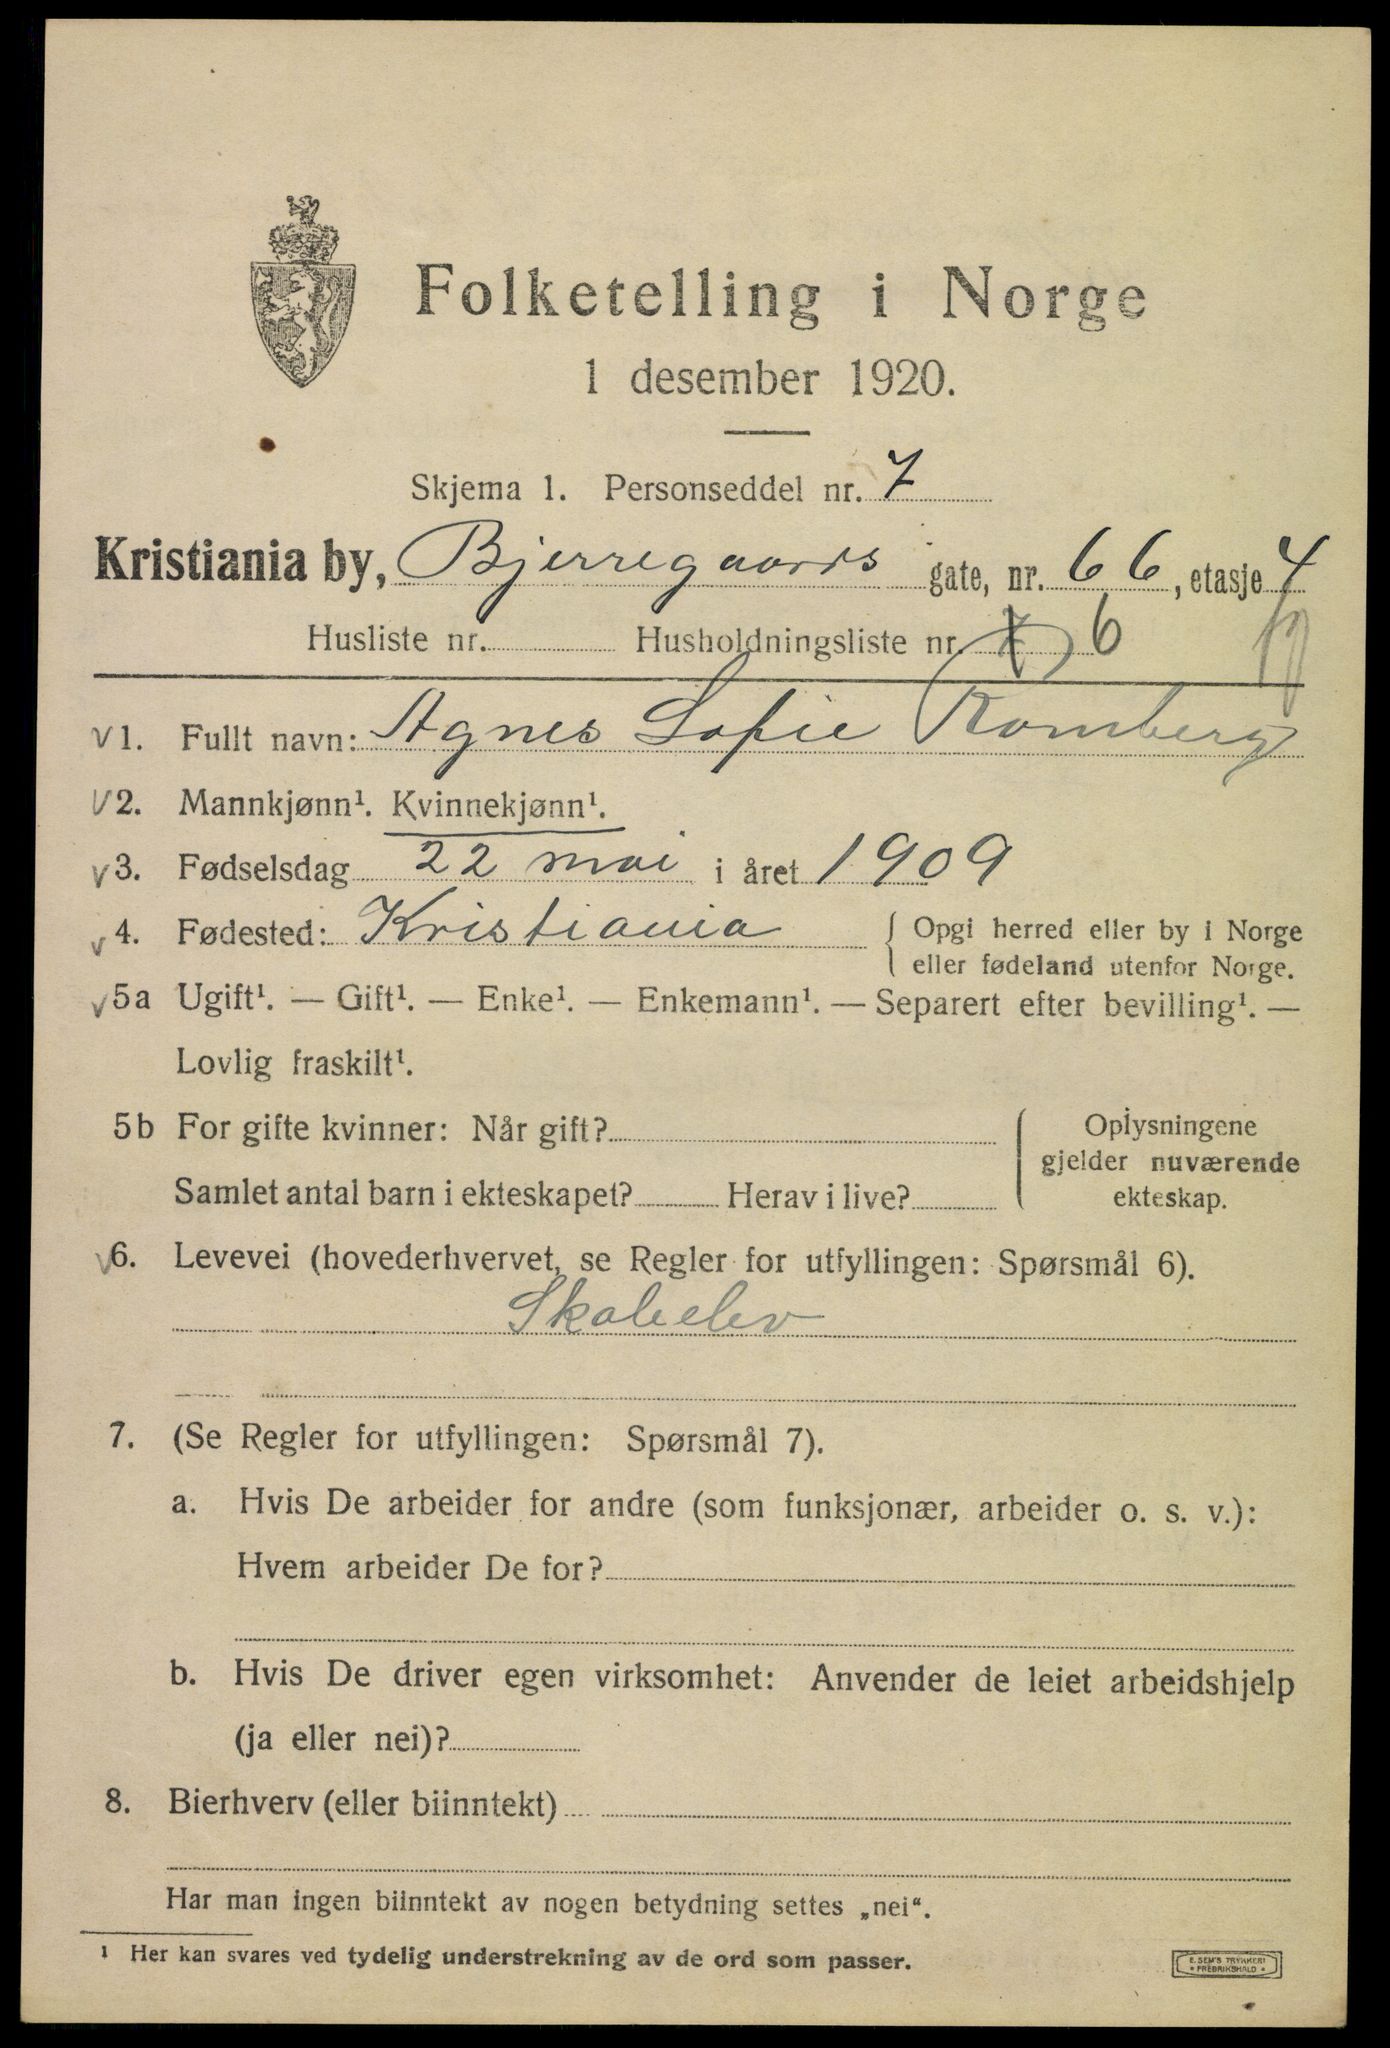 Folketelling i Norge
1 desember 1920.
Skjema 1. Personseddel nr. 7
Kristiania by, Bjerregaards gate, nr. 66, etasje 4
Husliste nr. Husholdningsliste nr. 7 6
v 1. Fullt navn: Agnes Sofie Romberg
v 2. Mannkjønn¹. Kvinnekjønn¹.
v 3. Fødselsdag 22 mai i året 1909
v 4. Fødested: Kristiania { Opgi herred eller by i Norge
eller fødeland utenfor Norge.
v 5a Ugift¹. — Gift¹. — Enke¹. — Enkemann¹. — Separert efter bevilling¹. —
Lovlig fraskilt¹.
5b For gifte kvinner: Når gift?
Samlet antal barn i ekteskapet? Herav i live?
Oplysningene
gjelder nuværende
ekteskap.
v 6. Levevei (hovederhvervet, se Regler for utfyllingen: Spørsmål 6).
Skoleelev
7. (Se Regler for utfyllingen: Spørsmål 7).
a. Hvis De arbeider for andre (som funksjonær, arbeider o. s. v.):
Hvem arbeider De for?
b. Hvis De driver egen virksomhet: Anvender de leiet arbeidshjelp
(ja eller nei)?
8. Bierhverv (eller biinntekt)
Har man ingen biinntekt av nogen betydning settes „nei“.
¹ Her kan svares ved tydelig understrekning av de ord som passer.
E. SEM'S TRYKKERI
• FREDRIKSHALD •